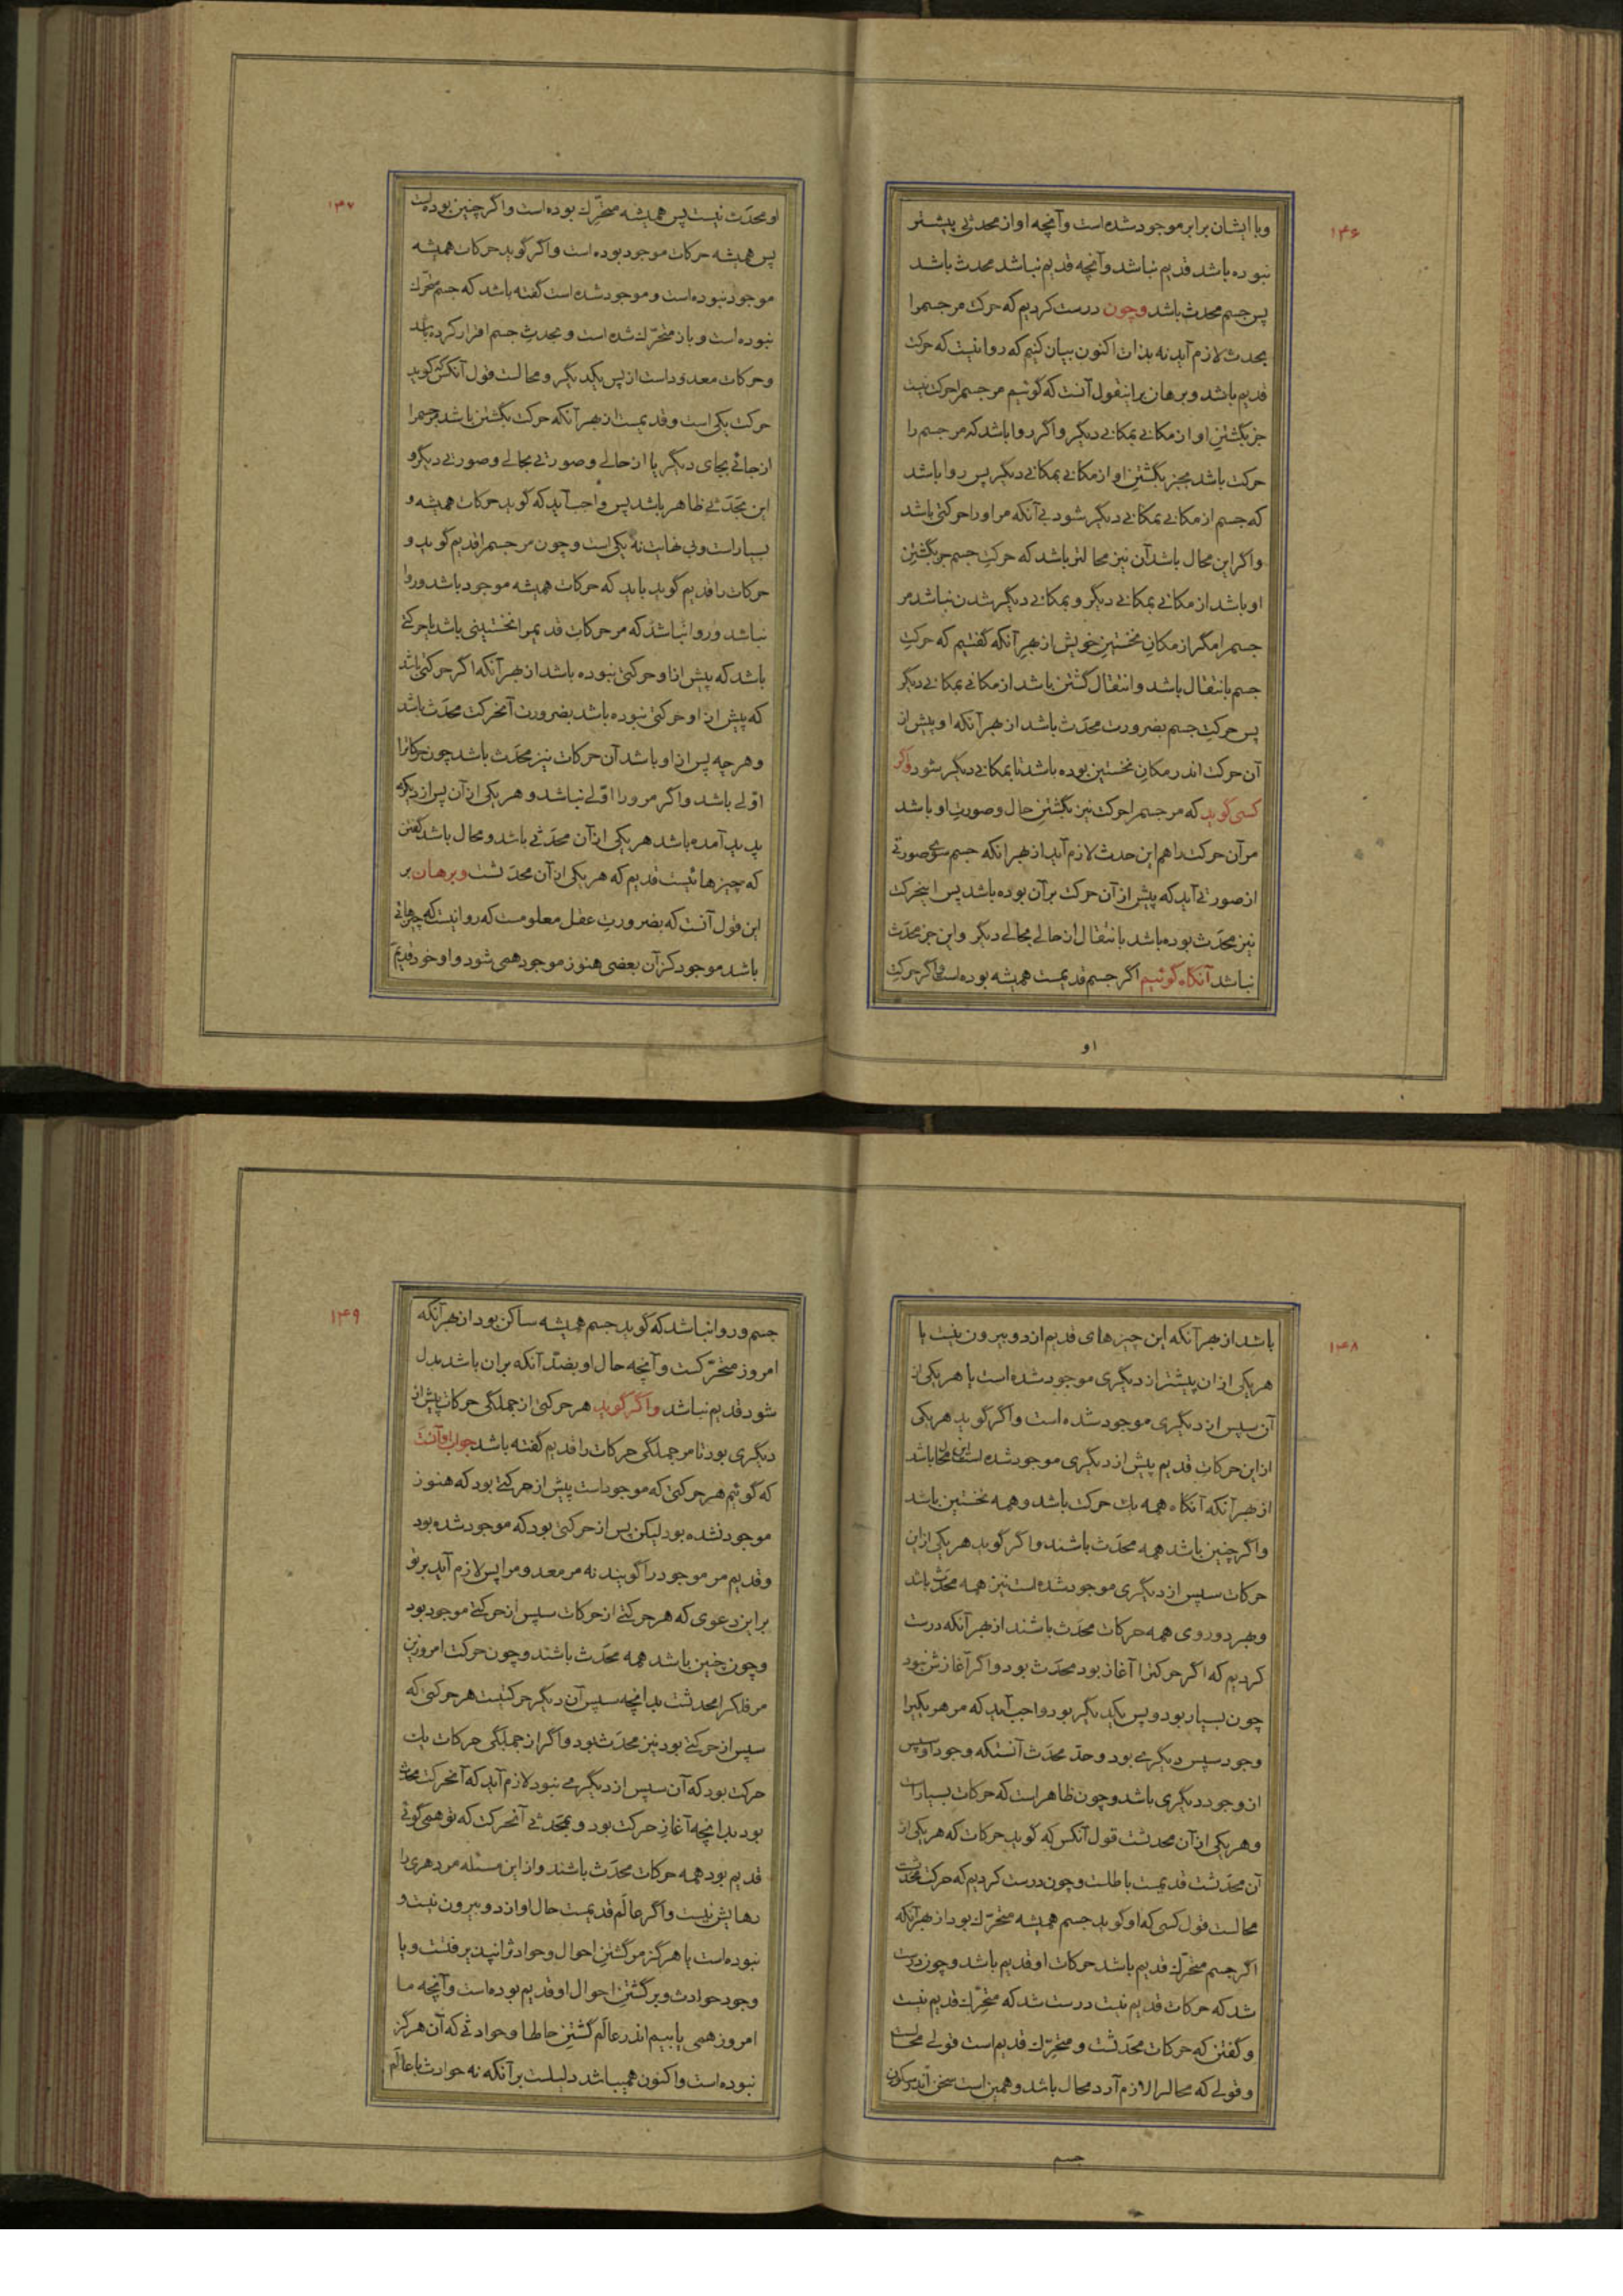 ۱۴۶
وبا ایشان برابر موجود شده است وآنچه او از محدثی پیشتر
نبوده باشد قدیم نباشد وآنچه قدیم نباشد محدث باشد
پس جسم محدث باشد وچون درست کردیم که حرکت مر جسمرا
بحدث لازم آید نه بذات اکنون بیان کنیم که روا نیست که حرکت
قدیم باشد وبرهان برینقول آنست که گوئیم مر جسمرا حرکت نیست
جز بگشتن او از مکانی بمکانی دیگر واگر روا باشد که مر جسم را
حرکت باشد بجز بگشتن او از مکانی بمکانی دیگر پس روا باشد
که جسم از مکانی بمکانی دیگر شود بی آنکه مر او را حرکتی باشد
واگر این محال باشد آن نیز محالتر باشد که حرکت جسم جز بگشتن
او باشد از مکانی بمکانی دیگر وبمکانی دیگر شدن نباشد مر
جسم را مگر از مکان نخستین خویش از بهر آنکه گفتیم که حرکت
جسم بانتقال باشد وانتقال گشتن باشد از مکانی بمکانی دیگر
پس حرکت جسم بضرورت محدَث باشد از بهر آنکه او پیش از
آن حرکت اندر مکان نخستین بوده باشد تا بمکانی دیگر شود واگر
کسی گوید که مر جسمرا حرکت نیز بگشتن حال وصورت او باشد
مر آن حرکت را هم این حدث لازم آید از بهر آنکه جسم سوی صورتی
از صورتی آید که پیش از آن حرکت بر آن بوده باشد پس اینحرکت
نیز محدَث بوده باشد بانتقال از حالی بحالی دیگر واین جز محدَث
نباشد آنگاه گوئیم اگر جسم قدیمست همیشه بوده است واگر حرکت
او
۱۴۷
او محدَث نیست پس همیشه متحرّک بوده است واگر چنین بوده است
پس همیشه حرکات موجود بوده است واگر گوید حرکات همیشه
موجود نبوده است وموجود شده است گفته باشد که جسم متحرّک
نبوده است وباز متحرّک شده است وبحدث جسم اقرار کرده باشد
وحرکات معدود است از پس یکدیگر ومحالست قول آنکس که گوید
حرکت یکی است وقدیمست از بهر آنکه حرکت بگشتن باشد مر جسمرا
از جائی بجای دیگر یا از حالی وصورتی بحالی وصورتی دیگر و
این محدَثی ظاهر باشد پس واجب آید که گوید حرکات همیشه و
بسیار است وبی نهایت نه یکی است وچون مر جسمرا قدیم گوید و
حرکات را قدیم گوید باید که حرکات همیشه موجود باشد وروا
نباشد وروا نباشد که مر حرکات قدیم را نخستینی باشد یا حرکتی
باشد که پیش از او حرکتی نبوده باشد از بهر آنکه اگر حرکتی باشد
که پیش از او حرکتی نبوده باشد بضرورت آنحرکت محدَث باشد
وهر چه پس از او باشد آن حرکات نیز محدَث باشد چون حرکاترا
اوّلی باشد واگر مر ورا اوّلی نباشد وهر یکی از آن پس از دیگری
پدید آمده باشد هر یکی از آن محدَثی باشد ومحال باشد گفتن
که چیزهائیست قدیم که هر یکی از آن محدَثست وبرهان بر
این قول آنست که بضرورت عقل معلومست که روا نیست که چیزهائی
باشد موجود کز آن بعضی هنوز موجود همی شود واو خود قدیم
۱۴۸
باشد از بهر آنکه این چیزهای قدیم از دو بیرون نیست یا
هر یکی از ان پیشتر از دیگری موجود شده است یا هر یکی از
آن سپس از دیگری موجود شده است واگر گوید هر یکی
از این حرکات قدیم پیش از دیگری موجود شده است این محال باشد
از بهر آنکه آنگاه همه یک حرکت باشد وهمه نخستین باشد
واگر چنین باشد همه محدَث باشند واگر گوید هر یکی از این
حرکات سپس از دیگری موجود شده است نیز همه محدَث باشد
وبهر دو روی همه حرکات محدَث باشند از بهر آنکه درست
کردیم که اگر حرکترا آغاز بود محدَث بود واگر آغازش نبود
چون بسیار بود وپس یکدیگر بود واجب آید که مر هر یکیرا
وجود سپس دیگری بود وحدّ محدَث آنستکه وجود او پس
از وجود دیگری باشد وچون ظاهر است که حرکات بسیار است
وهر یکی از آن محدثست قول آنکس که گوید حرکات که هر یکی از
آن محدَثست قدیمست باطلست وچون درست کردیم که حرکت محدَثست
محالست قول کسی که او گوید جسم همیشه متحرّک بود از بهر آنکه
اگر جسم متحرّک قدیم باشد حرکات او قدیم باشد وچون درست
شد که حرکات قدیم نیست درست شد که متحرّک قدیم نیست
وگفتن که حرکات محدَثست ومتحرّک قدیم است قولی محالست
وقولی که محالرا لازم آرد محال باشد وهمین است سخن اندر سکون
جسم
۱۴۹
جسم وروا نباشد که گوید جسم همیشه ساکن بود از بهر آنکه
امروز متحرّکست وآنچه حال او بضدّ آنکه بران باشد بدل
شود قدیم نباشد واگر گوید هر حرکتی از جملگی حرکات پیش از
دیگری بود تا مر جملگی حرکات را قدیم گفته باشد جواب او آنست
که گوئیم هر حرکتی که موجود است پیش از حرکتی بود که هنوز
موجود نشده بود لیکن پس از حرکتی بود که موجود شده بود
وقدیم مر موجود را گویند نه مر معدومرا پس لازم آید بر تو
بر این دعوی که هر حرکتی از حرکات سپس از حرکتی موجود بود
وچون چنین باشد همه محدَث باشند وچون حرکت امروزین
مر فلکرا محدثست بدانچه سپس آن دیگر حرکتیست هر حرکتی که
سپس از حرکتی بود نیز محدَث بود واگر از جملگی حرکات یک
حرکت بود که آن سپس از دیگری نبود لازم آید که آنحرکت محدث
بود بدانچه آغاز حرکت بود وبمحدَثی آنحرکت که تو همی گوئی
قدیم بود همه حرکات محدَث باشند واز این مسئله مر دهری را
رهایش نیست واگر عالَم قدیمست حال او از دو بیرون نیست و
نبوده است یا هرگز مر گشتن احوال وحوادث را نپذیرفتست ویا
وجود حوادث وبر گشتن احوال او قدیم بوده است وآنچه ما
امروز همی یابیم اندر عالَم گشتن حالها وحوادثی که آن هرگز
نبوده است واکنون همیباشد دلیلست بر آنکه نه حوادث با عالَم